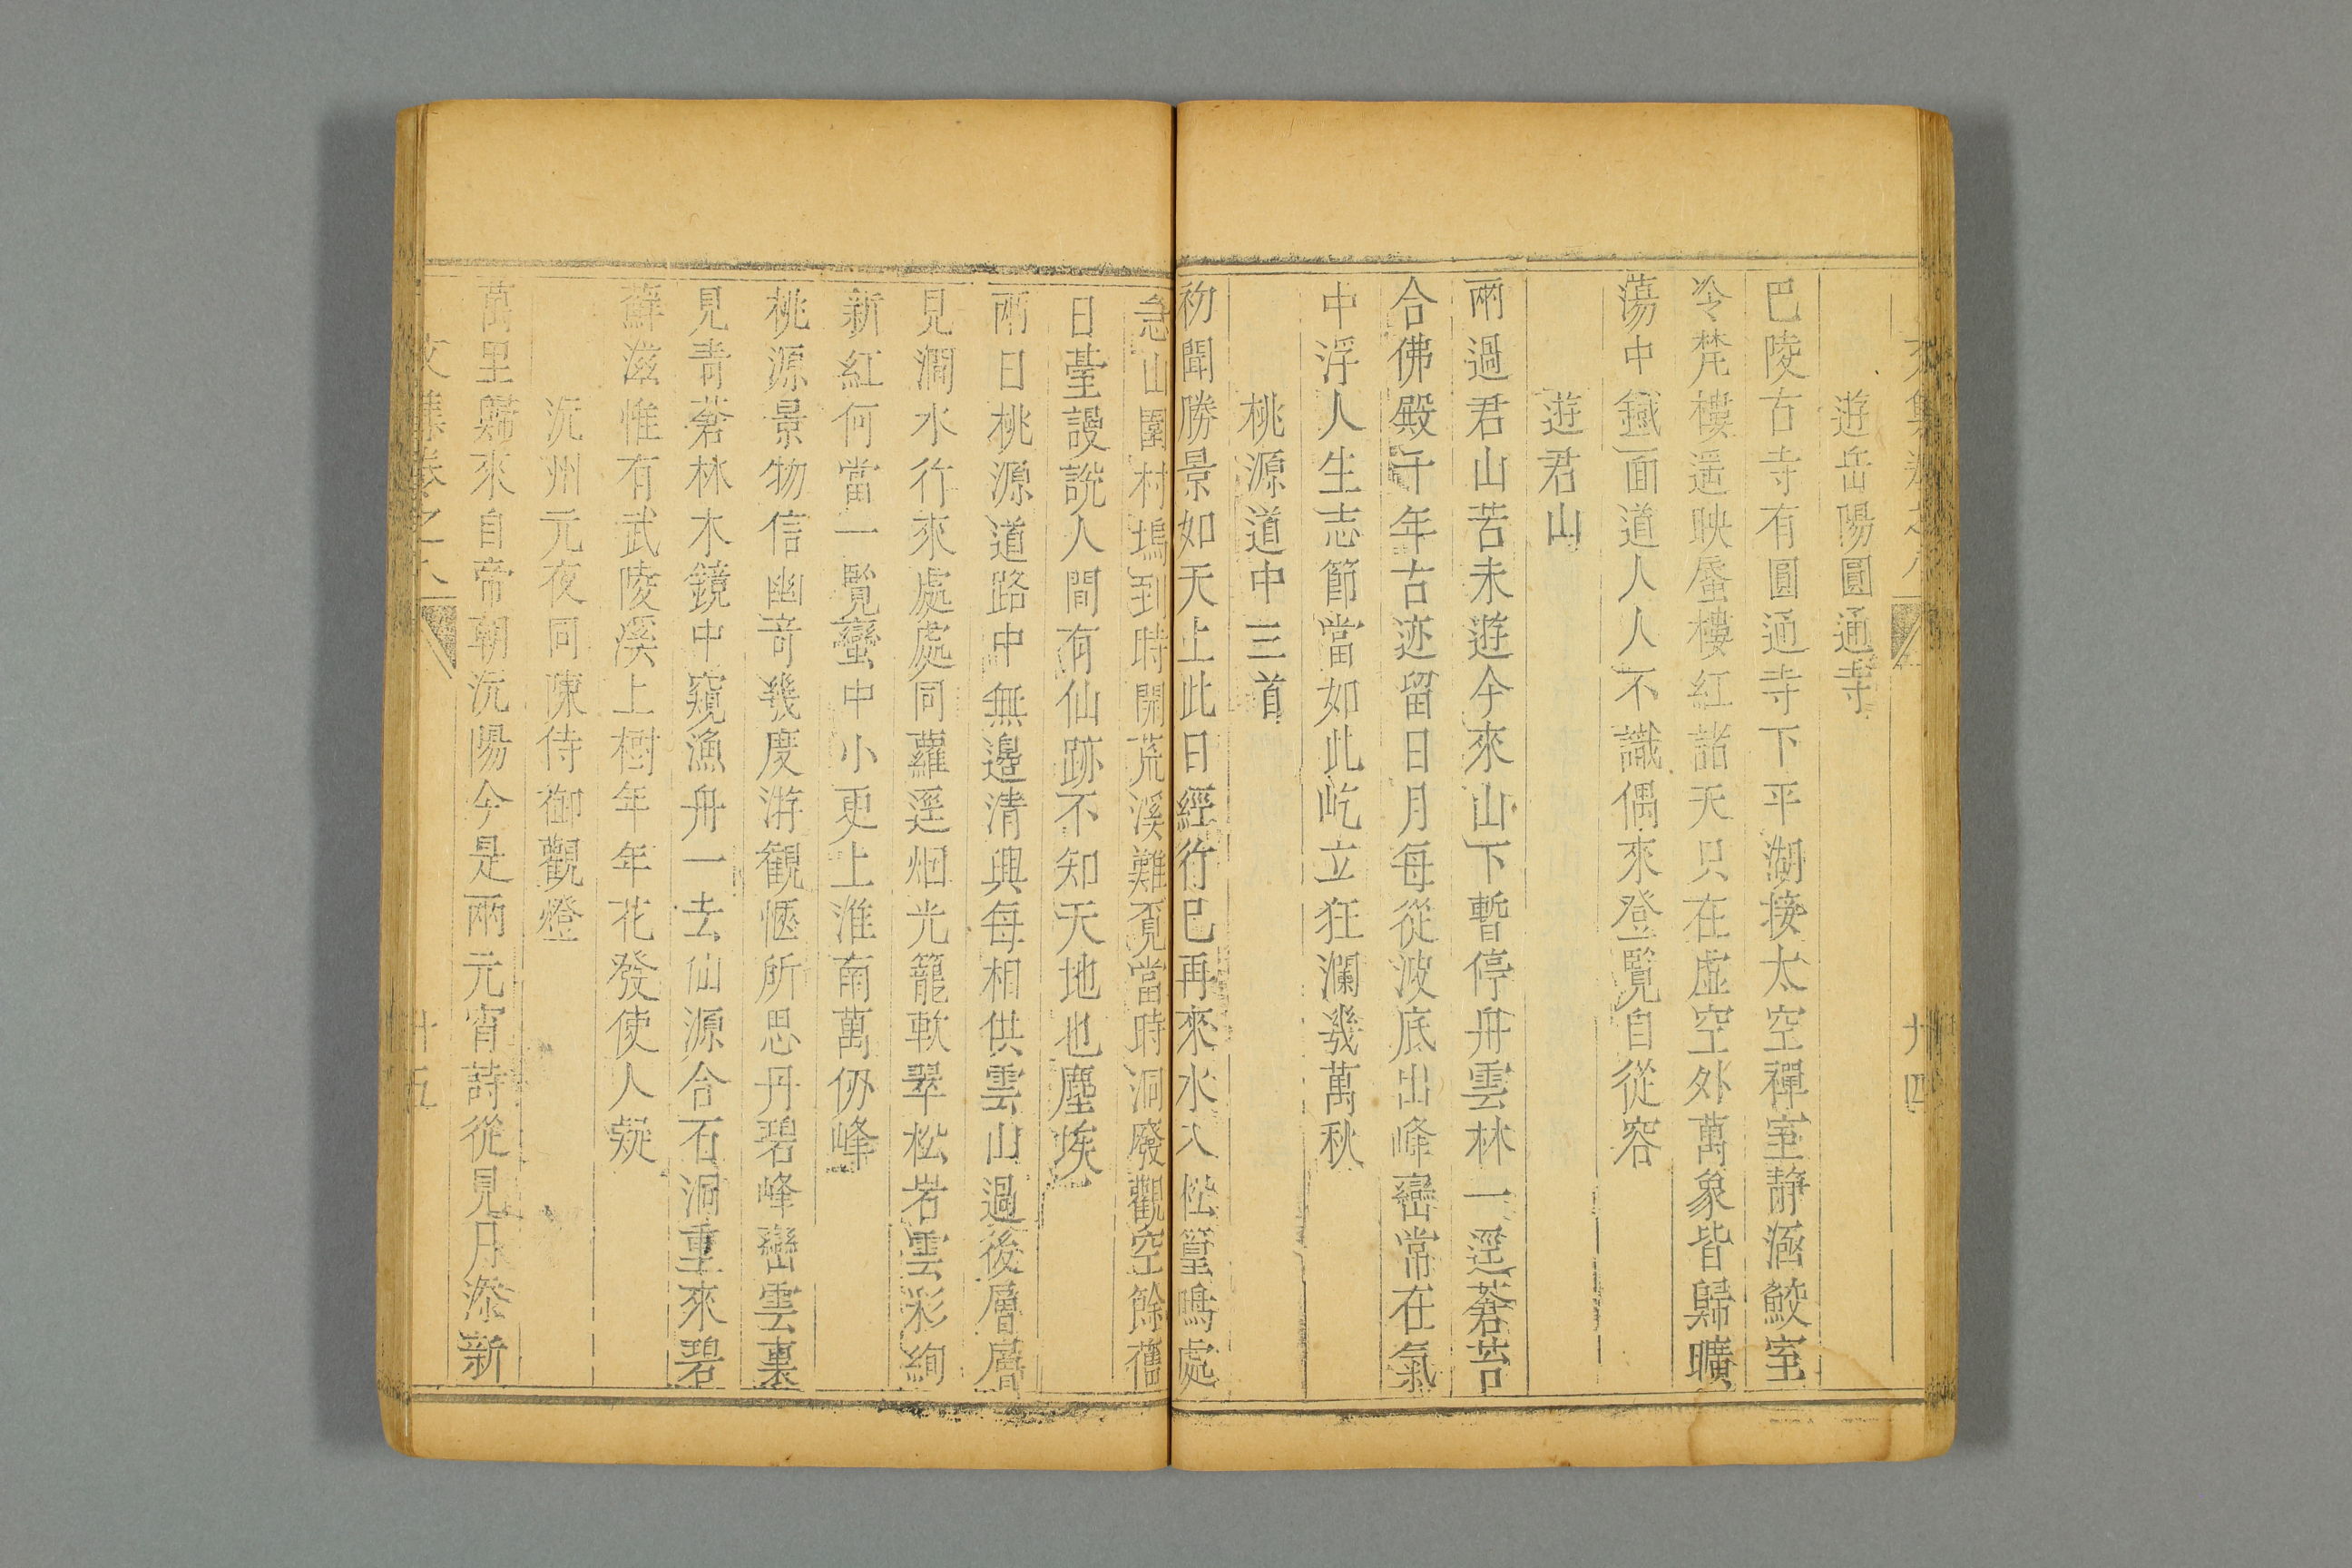 遊岳陽圓通寺
巴陵古寺有圓通寺下平湖接太空禪室靜涵鮫室
冷梵樓遥映蜃樓紅諸天只在虛空外萬象皆歸曠
蕩中鐵面道人人不識偶來登覽自從容
遊君山
兩過君山苦未遊今來山下暫停舟雲林一逕蒼苔
合佛殿千年古迹留日月每從波底出峰巒常在氣
中浮人生志節當如此屹立狂瀾幾萬秋
桃源道中三首
初聞勝景如天上此日經行巳再來水入松篁鳴處
急山圍村塢到時開荒溪難覓當時洞廢觀空餘舊
日臺謾說人間有仙跡不知天地也塵埃
兩日桃源道路中無邊清興每相供雲山過後層層
見澗水行來處處同蘿逕烟光籠軟翠松岩雲彩絢
新紅何當一覧蠻中小更上淮南萬仞峰
桃源景物信幽竒幾度游觀愜所思丹碧峰巒雲裏
見青蒼林木鏡中窺漁舟一去仙源合石洞重來碧
蘚滋惟有武陵溪上樹年年花發使人疑
沅州元夜同陳侍御觀燈
萬里歸來自帝朝沅陽今是兩元宵詩從見月添新
文集卷之
廿五